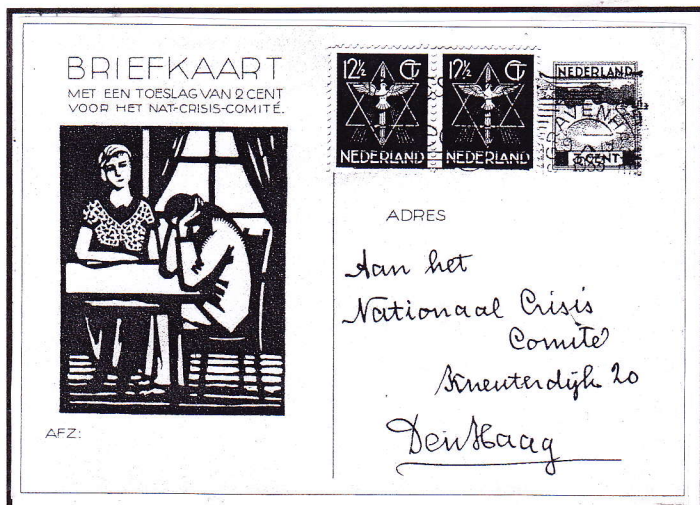 BRIEFKAART
MET EEN TOESLAG VAN 2 CENT
VOOR HET NAT-CRISIS-COMITÉ.
12½ CT
NEDERLAND
12½ CT
NEDERLAND
NEDERLAND
CENT
1933
ADRES
Aan het
Nationaal Crisis
Comité
Kneuterdijk 20
Den Haag
AFZ: